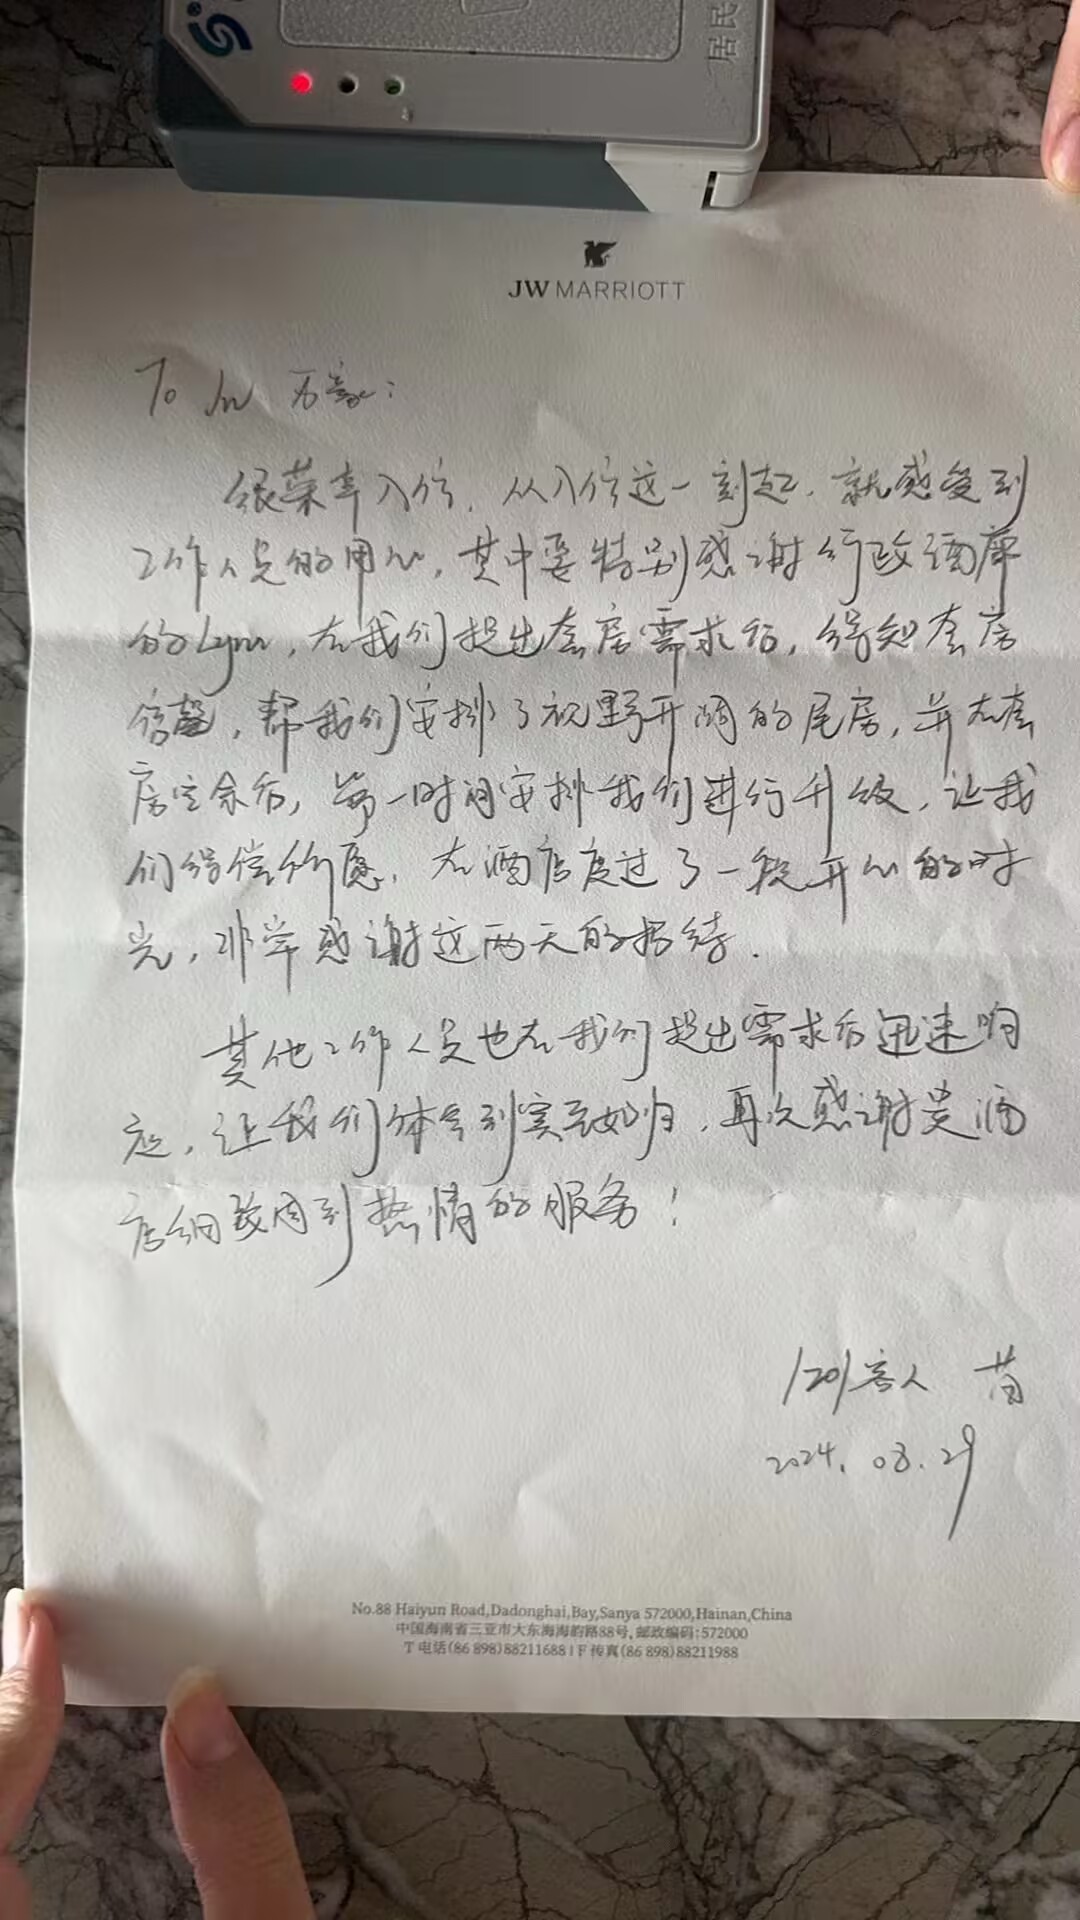 居民
JW MARRIOTT
To JW 万豪:
很荣幸入住,从入住这一刻起,就感受到
工作人员的用心,其中要特别感谢行政酒廊
的Lynn,在我们提出套房需求后,得知套房
售罄,帮我们安排了视野开阔的尾房,并在套
房空余后,第一时间安排我们进行升级,让我
们得偿所愿,在酒店度过了一段开心的时
光,非常感谢这两天的招待.
其他工作人员也在我们提出需求后迅速响
应,让我们体会到宾至如归,再次感谢贵酒
店细致周到热情的服务!
1201客人 苗
2024.08.29
No.88 Haiyun Road,Dadonghai,Bay,Sanya 572000,Hainan,China
中国海南省三亚市大东海海韵路88号,邮政编码:572000
T 电话(86 898)88211688 | F 传真(86 898)88211988